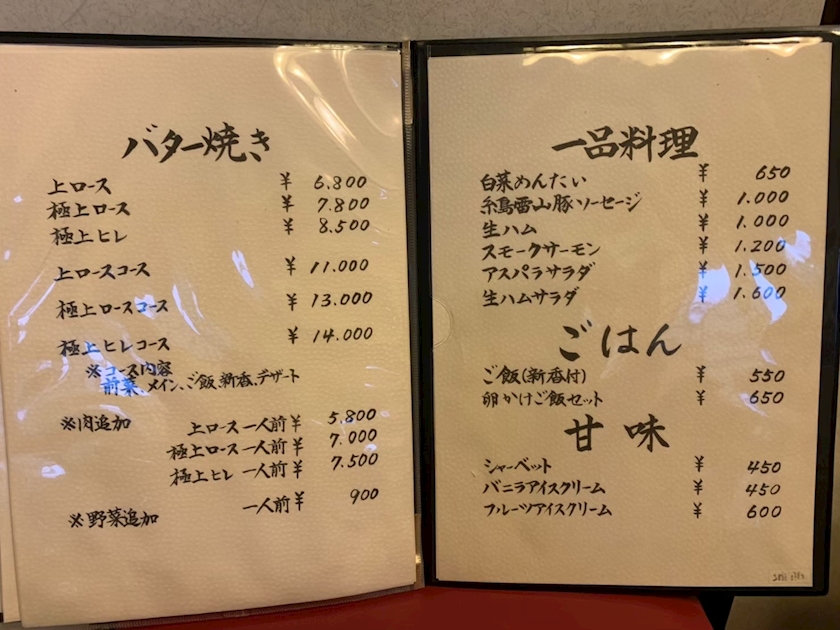 バター焼き
上ロース ¥ 6.800
極上ロース ¥ 7.800
極上ヒレ ¥ 8.500
上ロースコース ¥ 11.000
極上ロースコース ¥ 13.000
極上ヒレコース ¥ 14.000
※コース内容
前菜、メイン、ご飯、新香、デザート
※肉追加 上ロース 一人前 ¥ 5.800
極上ロース 一人前 ¥ 7.000
極上ヒレ 一人前 ¥ 7.500
※野菜追加 一人前 ¥ 900
一品料理
白菜めんたい ¥ 650
糸島雷山豚ソーセージ ¥ 1.000
生ハム ¥ 1.000
スモークサーモン ¥ 1.200
アスパラサラダ ¥ 1.500
生ハムサラダ ¥ 1.600
ごはん
ご飯(新香付) ¥ 550
卵かけご飯セット ¥ 650
甘味
シャーベット ¥ 450
バニラアイスクリーム ¥ 450
フルーツアイスクリーム ¥ 600